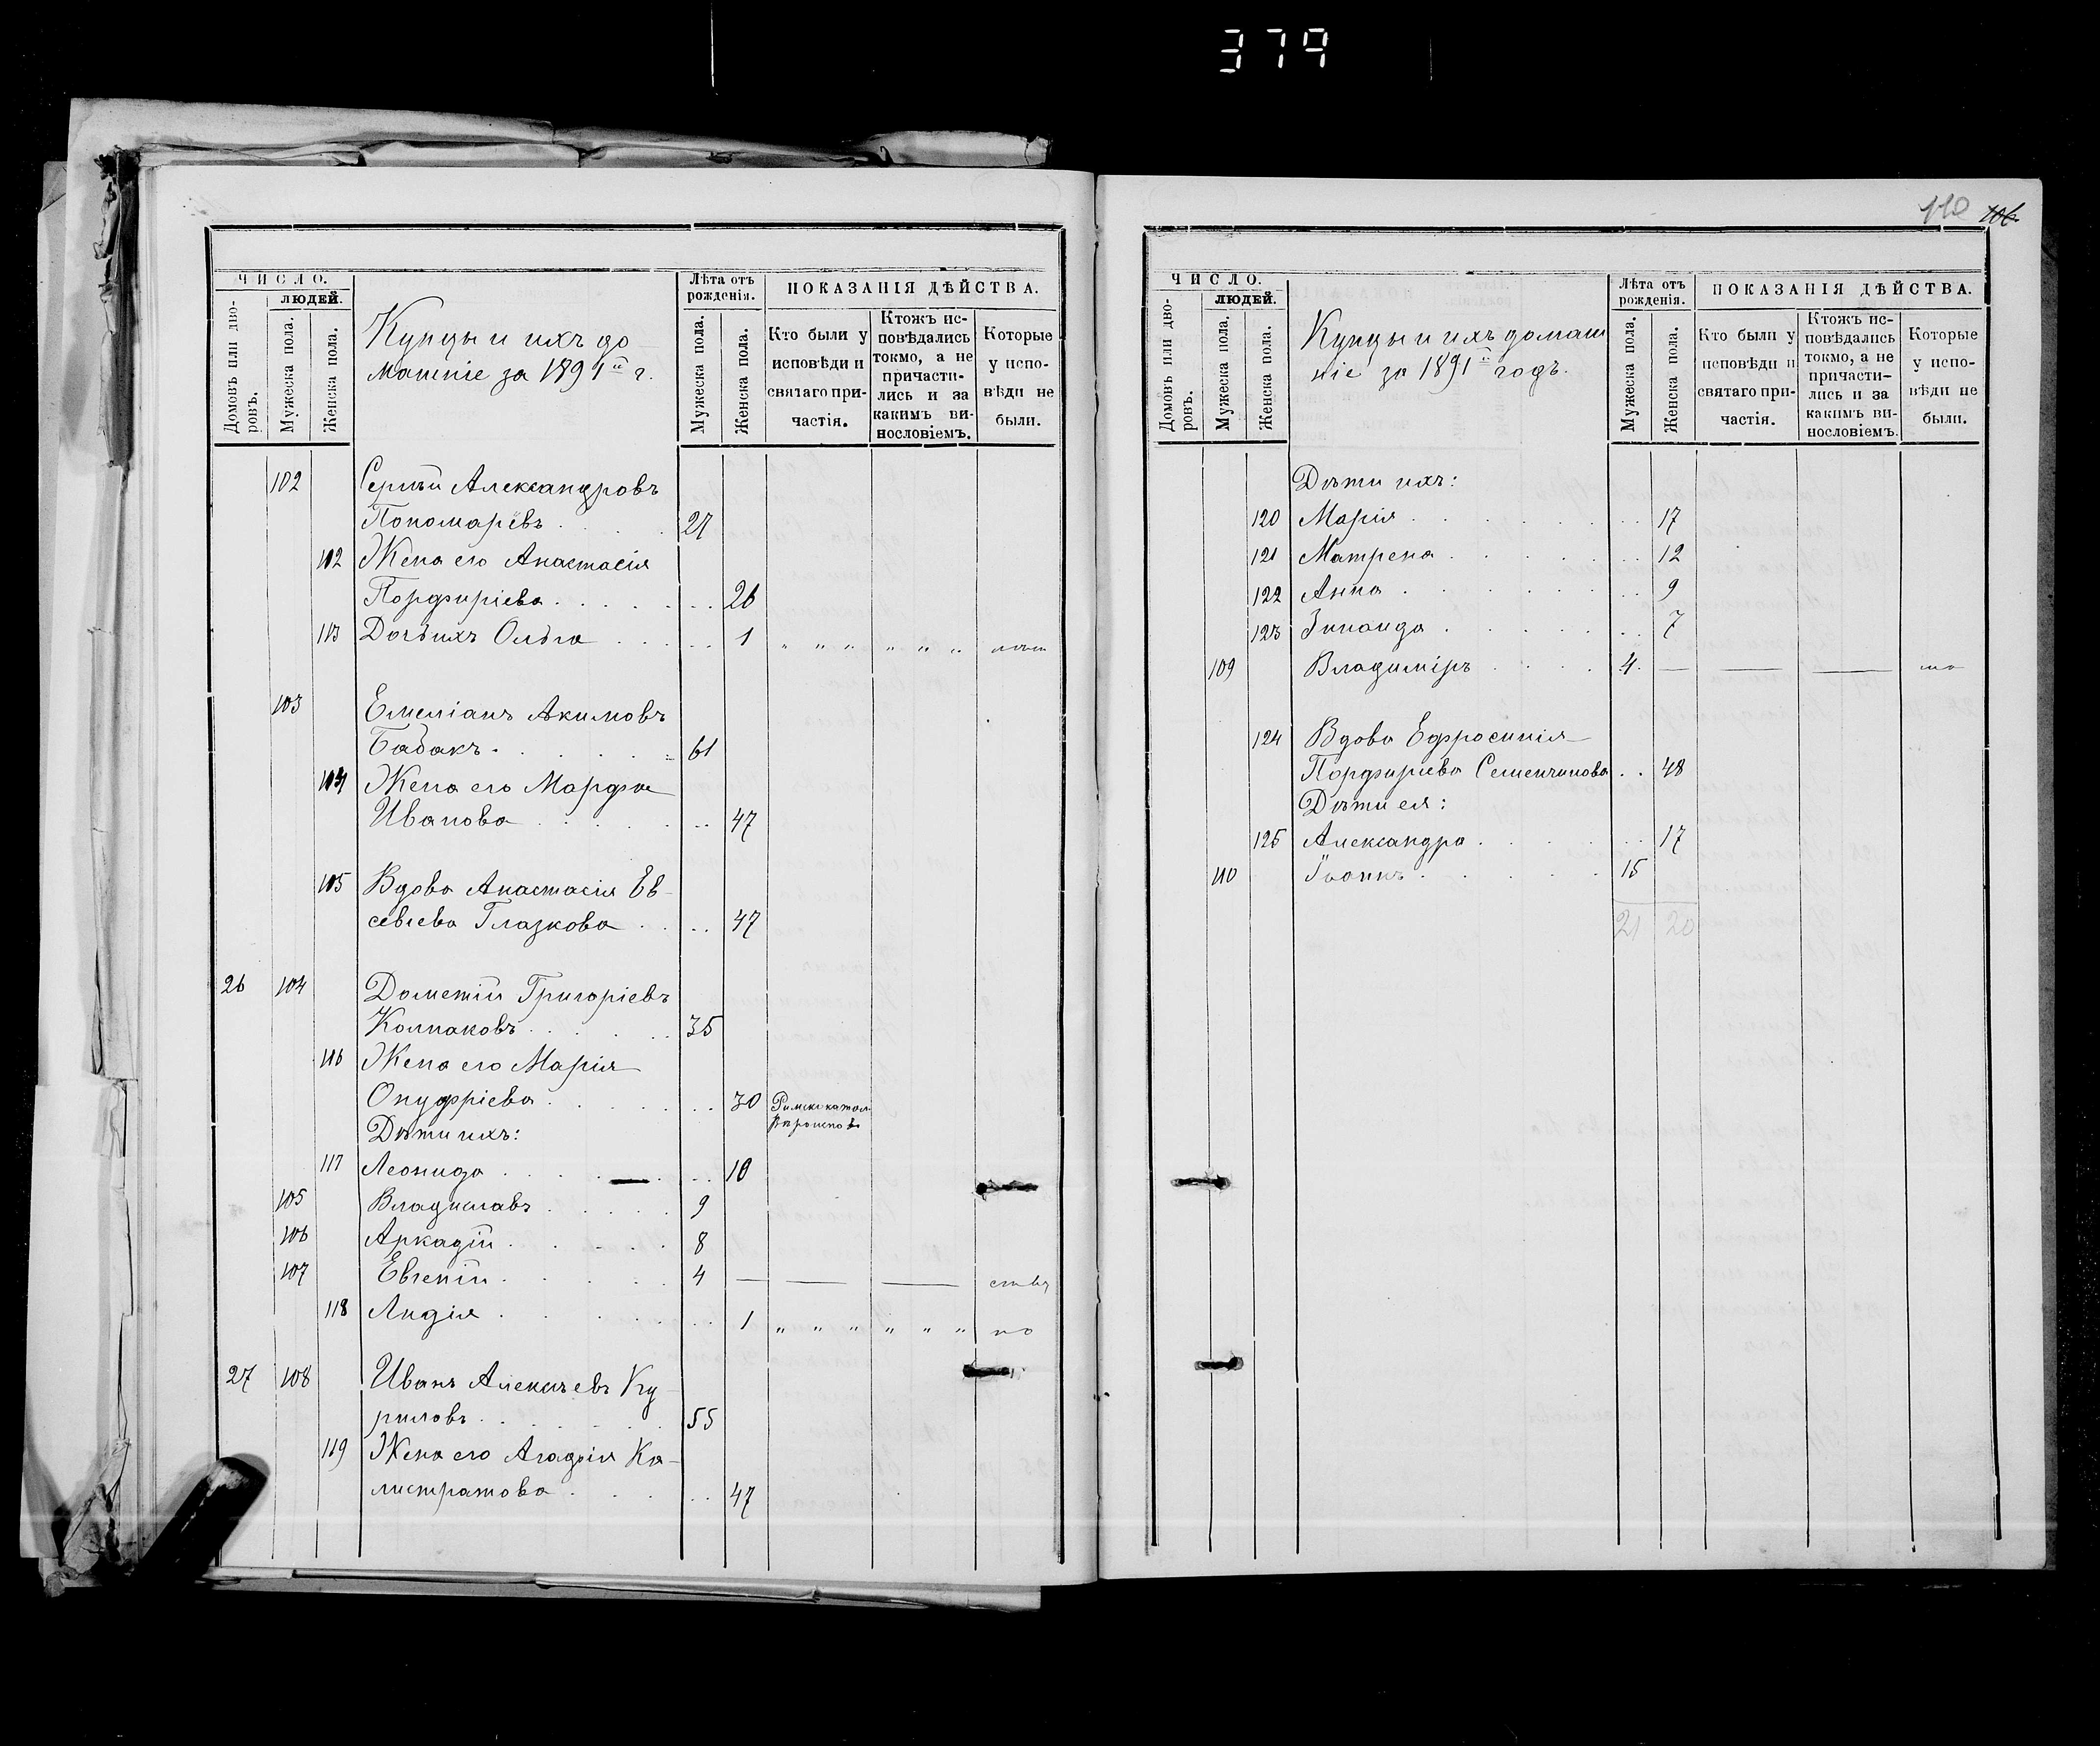 379
ЧИСЛО.
ЛЮДЕЙ.
Домовъ или дво-
ровъ.
Мужеска пола.
Женска пола.
Купцы и ихъ до
машніе за 1891й г.
Лѣта отъ
рожденія.
Мужеска пола.
Женска пола.
ПОКАЗАНІЯ ДѢЙСТВА.
Кто были у
исповѣди и
святаго при-
частія.
Ктожъ ис-
повѣдались
токмо, а не
причасти-
лись и за
какимъ ви-
нословіемъ.
Которые
у испо-
вѣди не
были.
102 Сергѣй Александровъ
Пономарёвъ 27
112 Жена его Анастасія
Порфиріева 26
113 Дочь ихъ Ольга 1
103 Емеліанъ Акимовъ
Бабакъ 61
114 Жена его Марфа
Иванова 47
115 Вдова Анастасія Ев-
севіева Глазкова 47
26 104 Дометій Григоріевъ
Колпаковъ 35
116 Жена его Марія
Онуфріева 30
Дѣти ихъ:
117 Леонида 10
105 Владиславъ 9
106 Аркадій 8
107 Евгеній 4
118 Лидія 1 по
27 108 Иванъ Алексѣевъ Ку
риловъ 55
119 Жена его Агафія Ка-
листратова 47
110 106
ЧИСЛО.
ЛЮДЕЙ.
Домовъ или дво-
ровъ.
Мужеска пола.
Женска пола.
Купцы и ихъ домаш
ніе за 1891й годъ.
Лѣта отъ
рожденія.
Мужеска пола.
Женска пола.
ПОКАЗАНІЯ ДѢЙСТВА.
Кто были у
исповѣди и
святаго при-
частія.
Ктожъ ис-
повѣдались
токмо, а не
причасти-
лись и за
какимъ ви-
нословіемъ.
Которые
у испо-
вѣди не
были.
Дѣти ихъ:
120 Марія 17
121 Матрена 12
122 Анна 9
123 Зинаида 7
109 Владиміръ 4
124 Вдова Ефросинія
Порфиріева Семенчинова 48
Дѣти ея:
125 Александра 17
110 Іоаннъ 15
21 20